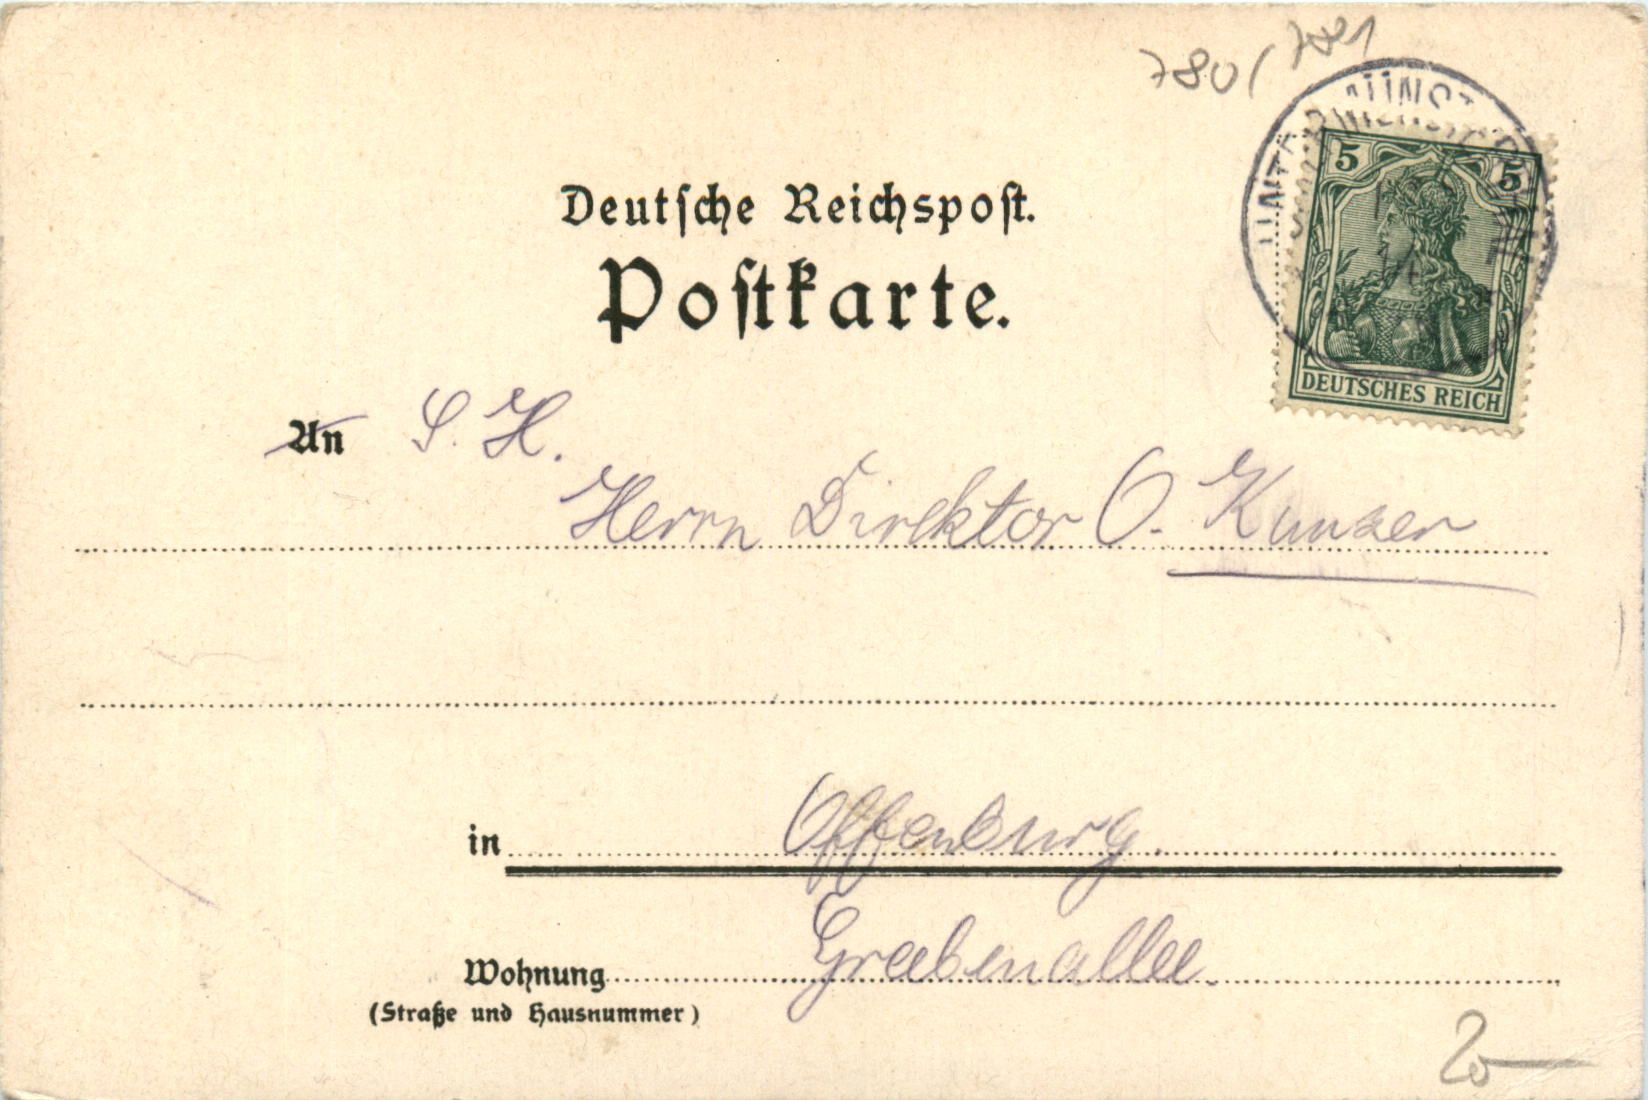 780/7801
UNTER MÜNSTERTAL
5 5
DEUTSCHES REICH
Deutsche Reichspost.
Postkarte.
An S. H.
Herrn Direktor O. Kunzer
in Offenburg.
Wohnung Grabenallee.
(Straße und Hausnummer)
20—